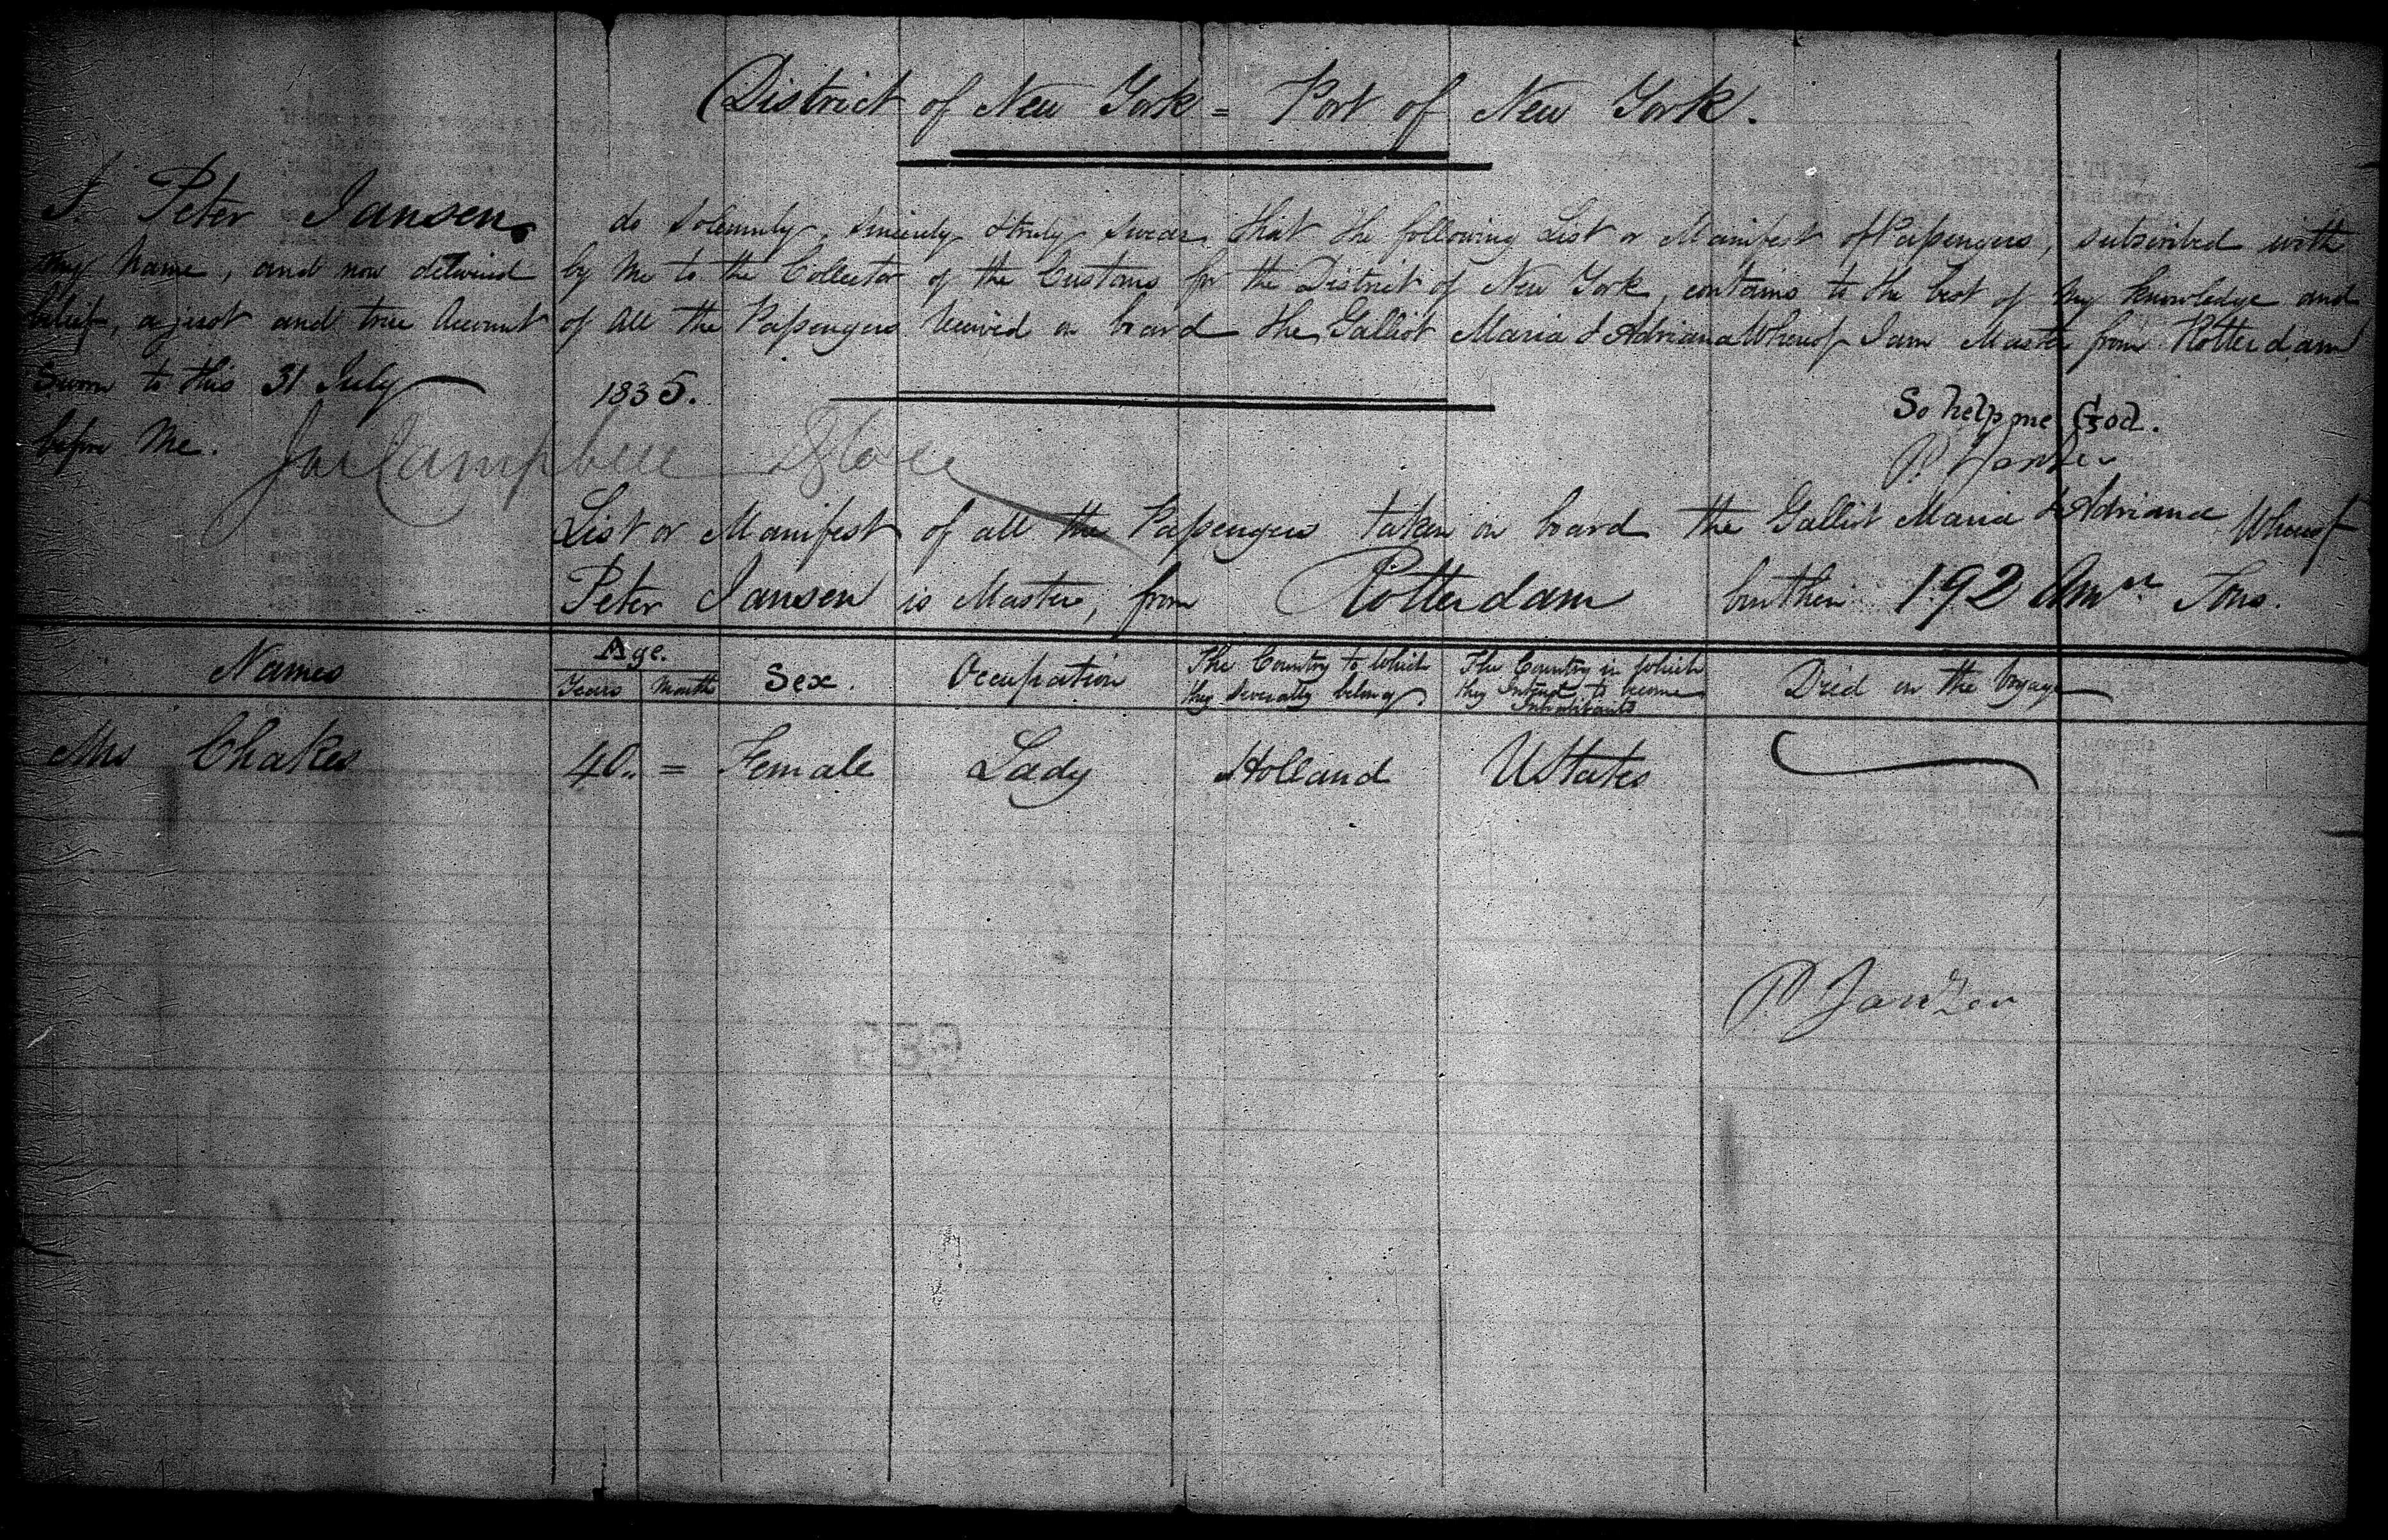 District of New York = Port of New York.
I Peter Jansen, do Solemnly, Sincerely & truly Swear, that the following List or Manifest of Passengers, subscribed with
my Name, and now delivered by me to the Collector of the Customs for the District of New York, contains to the best of my knowledge and
belief, a just and true Account of all the Passengers received on board the Galliot Maria & Adriana Whereof I am Master from Rotterdam
Sworn to this 31 July 1835. So help me God.
before Me. P Janzen
List or Manifest of all the Passengers taken on board the Galliot Maria & Adriana Whereof
Peter Jansen is Master, from Rotterdam burthen 192 Amn Tons.
Names Age. Years Months Sex. Occupation The Country to which they Severally belong. The Country in which they Intend to become Inhabitants Died on the Voyage
Mrs Chakes 40 .. = Female Lady Holland UStates
P Janzen